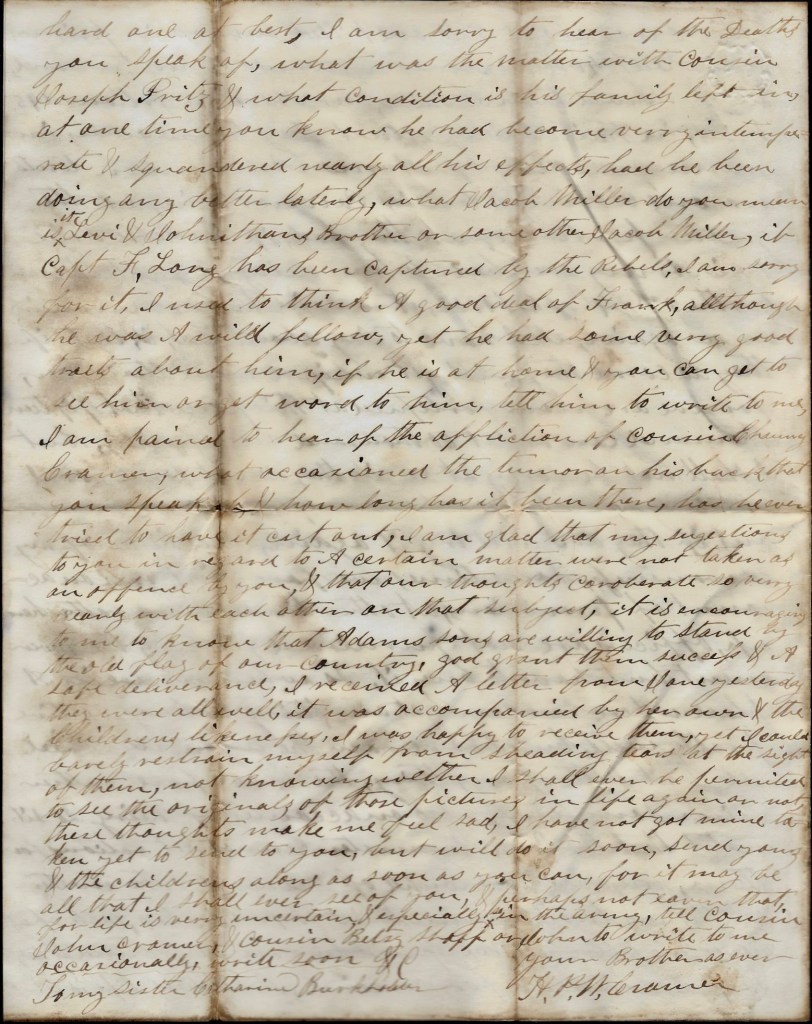 hard one at best, I am sorry to hear of the Deaths
you speak of, what was the matter with Cousin
Joseph Pritz & what condition is his family left in,
at one time you know he had become verry intempe
rate & squandered nearly all his effects, had he been
doing any better laterly, what Jacob Miller do you mean
is it Levi & Johnithans Brother or some other Jacob Miller, if
Capt F, Long has been captured by the Rebels, I am sorry
for it, I used to think A good deal of Frank, allthough
he was A wild fellow, yet he had some verry good
traits about him, if he is at home & you can get to
see him or get word to him, tell him to write to me,
I am pained to hear of the affliction of cousin
Cramer, what occasioned the tumor on his back that
you speak of, & how long has it been there, has he ever
tried to have it cut out, I am glad that my sugestions
to you in regard to A certain matter were not taken as
an offence by you, & that our thoughts coroberate so verry
nearly with each other on that subject, it is encouraging
to me to know that Adams sons are willing to stand by
the old flag of our country, god grant them success & A
safe deliverance, I received A letter from Jane yesterday
they were all well, it was accompanied by her own & the
Childrens likenesses, I was happy to receive them, yet I could
barely restrain myself from sheading tears at the sight
of them, not knowing wether I shall ever be permited
to see the originals of those pictures in life again or not
these thoughts make me feel sad, I have not got mine ta
ken yet to send to you, but will do it soon, send yours
& the childrens along as soon as you can, for it may be
all that I shall ever see of you, & perhaps not even that,
for life is verry uncertain, & especially in the army, tell Cousin
John Cramer, & Cousin Betsy or John to write to me
occasionally, write soon &C
your Brother as ever
To my Sister Catharine
H. P. W. Cramer